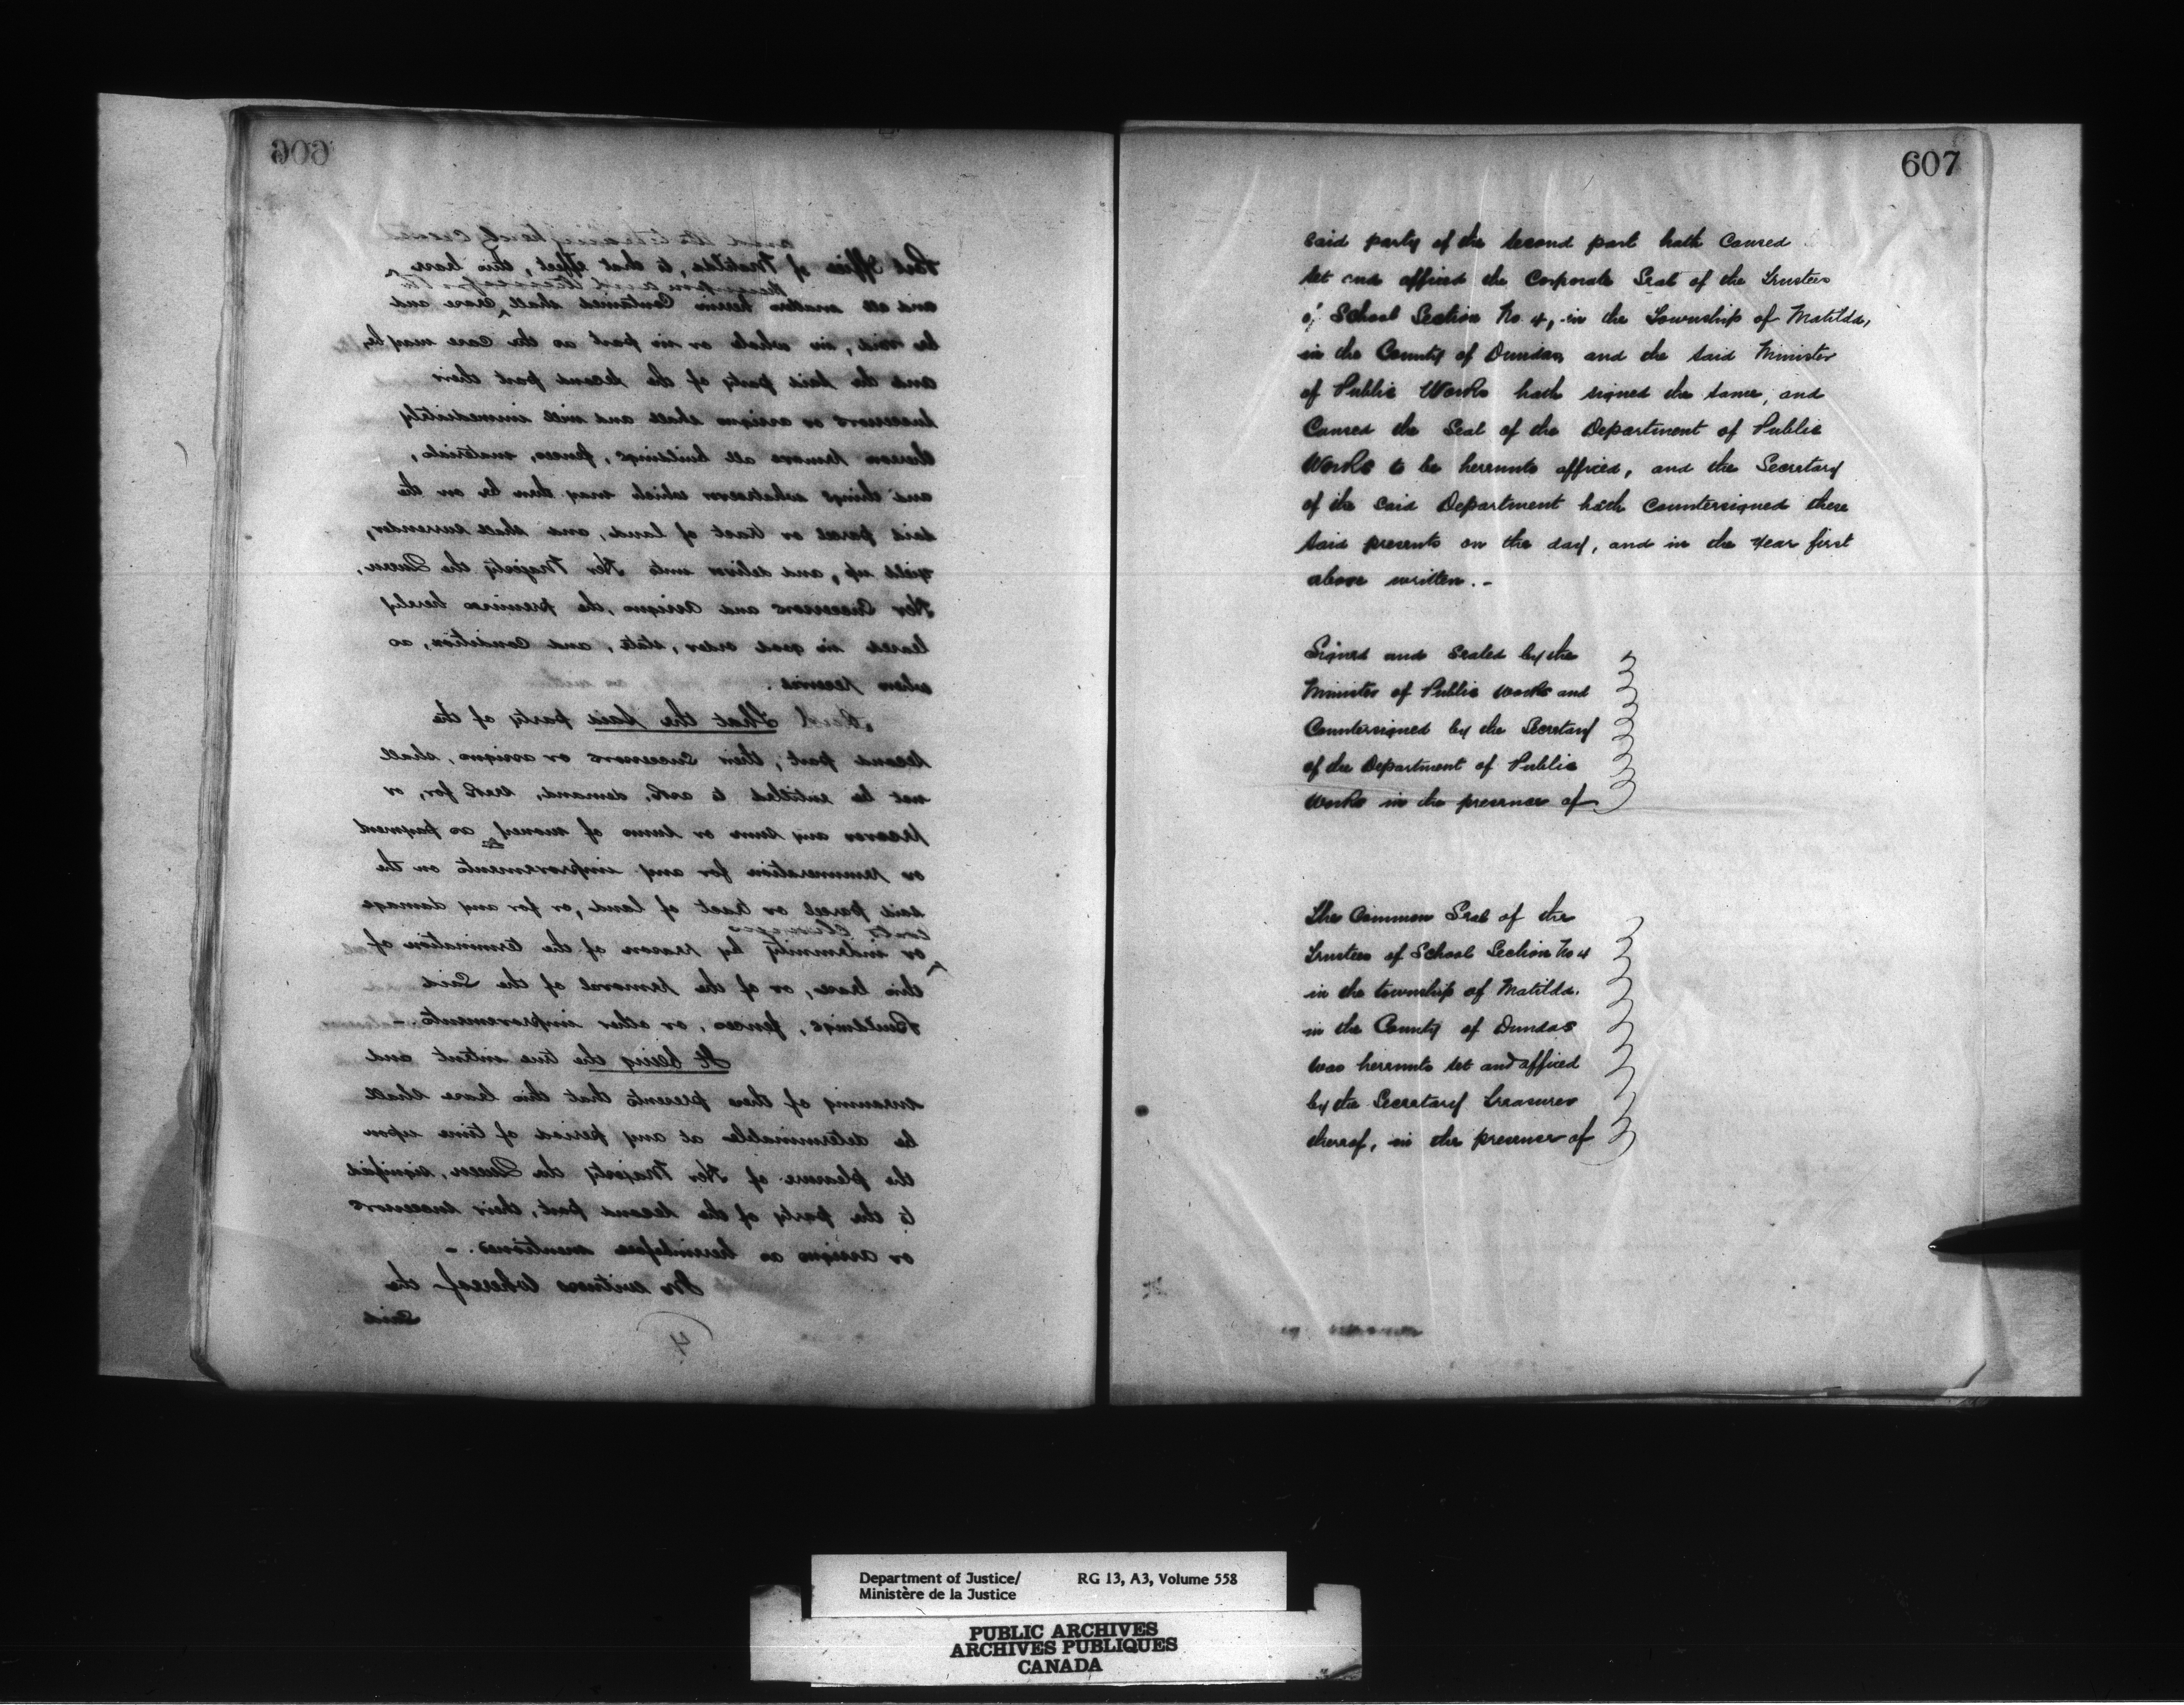 606
and the term hereby created
Post Office of Matilda, to that effect, this lease
thereupon and thereafter
and all matters herein contained shall cease and
be void, in whole or in part as the case may be,
and the said party of the second part their
successors or assigns shall and will immediately
thereon remove all buildings, fences, materials,
and things whatsoever which may then be on the
said parcel or tract of land, and shall surrender,
yield up, and deliver unto Her Majesty the Queen,
Her Successors and assigns, the premises hereby
leased in good order, state, and condition, as
when received.
And That the said party of the
second part, their successors or assigns, shall
not be entitled to ask, demand, seek for, or
recover any sum or sums of money as payment
or remuneration for any improvements on the
said parcel or tract of land, or for any damage
costs charges
or indemnity by reason of the termination of
this lease, or of the removal of the said
Buildings, fences, or other improvements. -
It being the true intent and
meaning of these presents that this lease shall
be determinable at any period of time upon
the pleasure of Her Majesty the Queen, signified
to the party of the second part, their successors
or assigns as hereinbefore mentioned. -
In witness whereof the
said
4
607
said party of the second part hath caused
set and affixed the Corporate Seal of the Trustees
of School Section No. 4, in the Township of Matilda,
in the County of Dundas, and the said Minister
of Public Works hath signed the same, and
Caused the Seal of the Department of Public
Works to be hereunto affixed, and the Secretary
of the said Department hath Countersigned these
said presents on the day, and in the year first
above written. -
Signed and Sealed by the
Minister of Public Works and
Countersigned by the Secretary
of the Department of Public
Works in the presence of
The Common Seal of the
Trustees of School Section No 4
in the township of Matilda.
in the County of Dundas
was hereunto set and affixed
by the Secretary Treasurer
thereof, in the presence of
Department of Justice/ RG 13, A3, Volume 558
Ministère de la Justice
PUBLIC ARCHIVES
ARCHIVES PUBLIQUES
CANADA